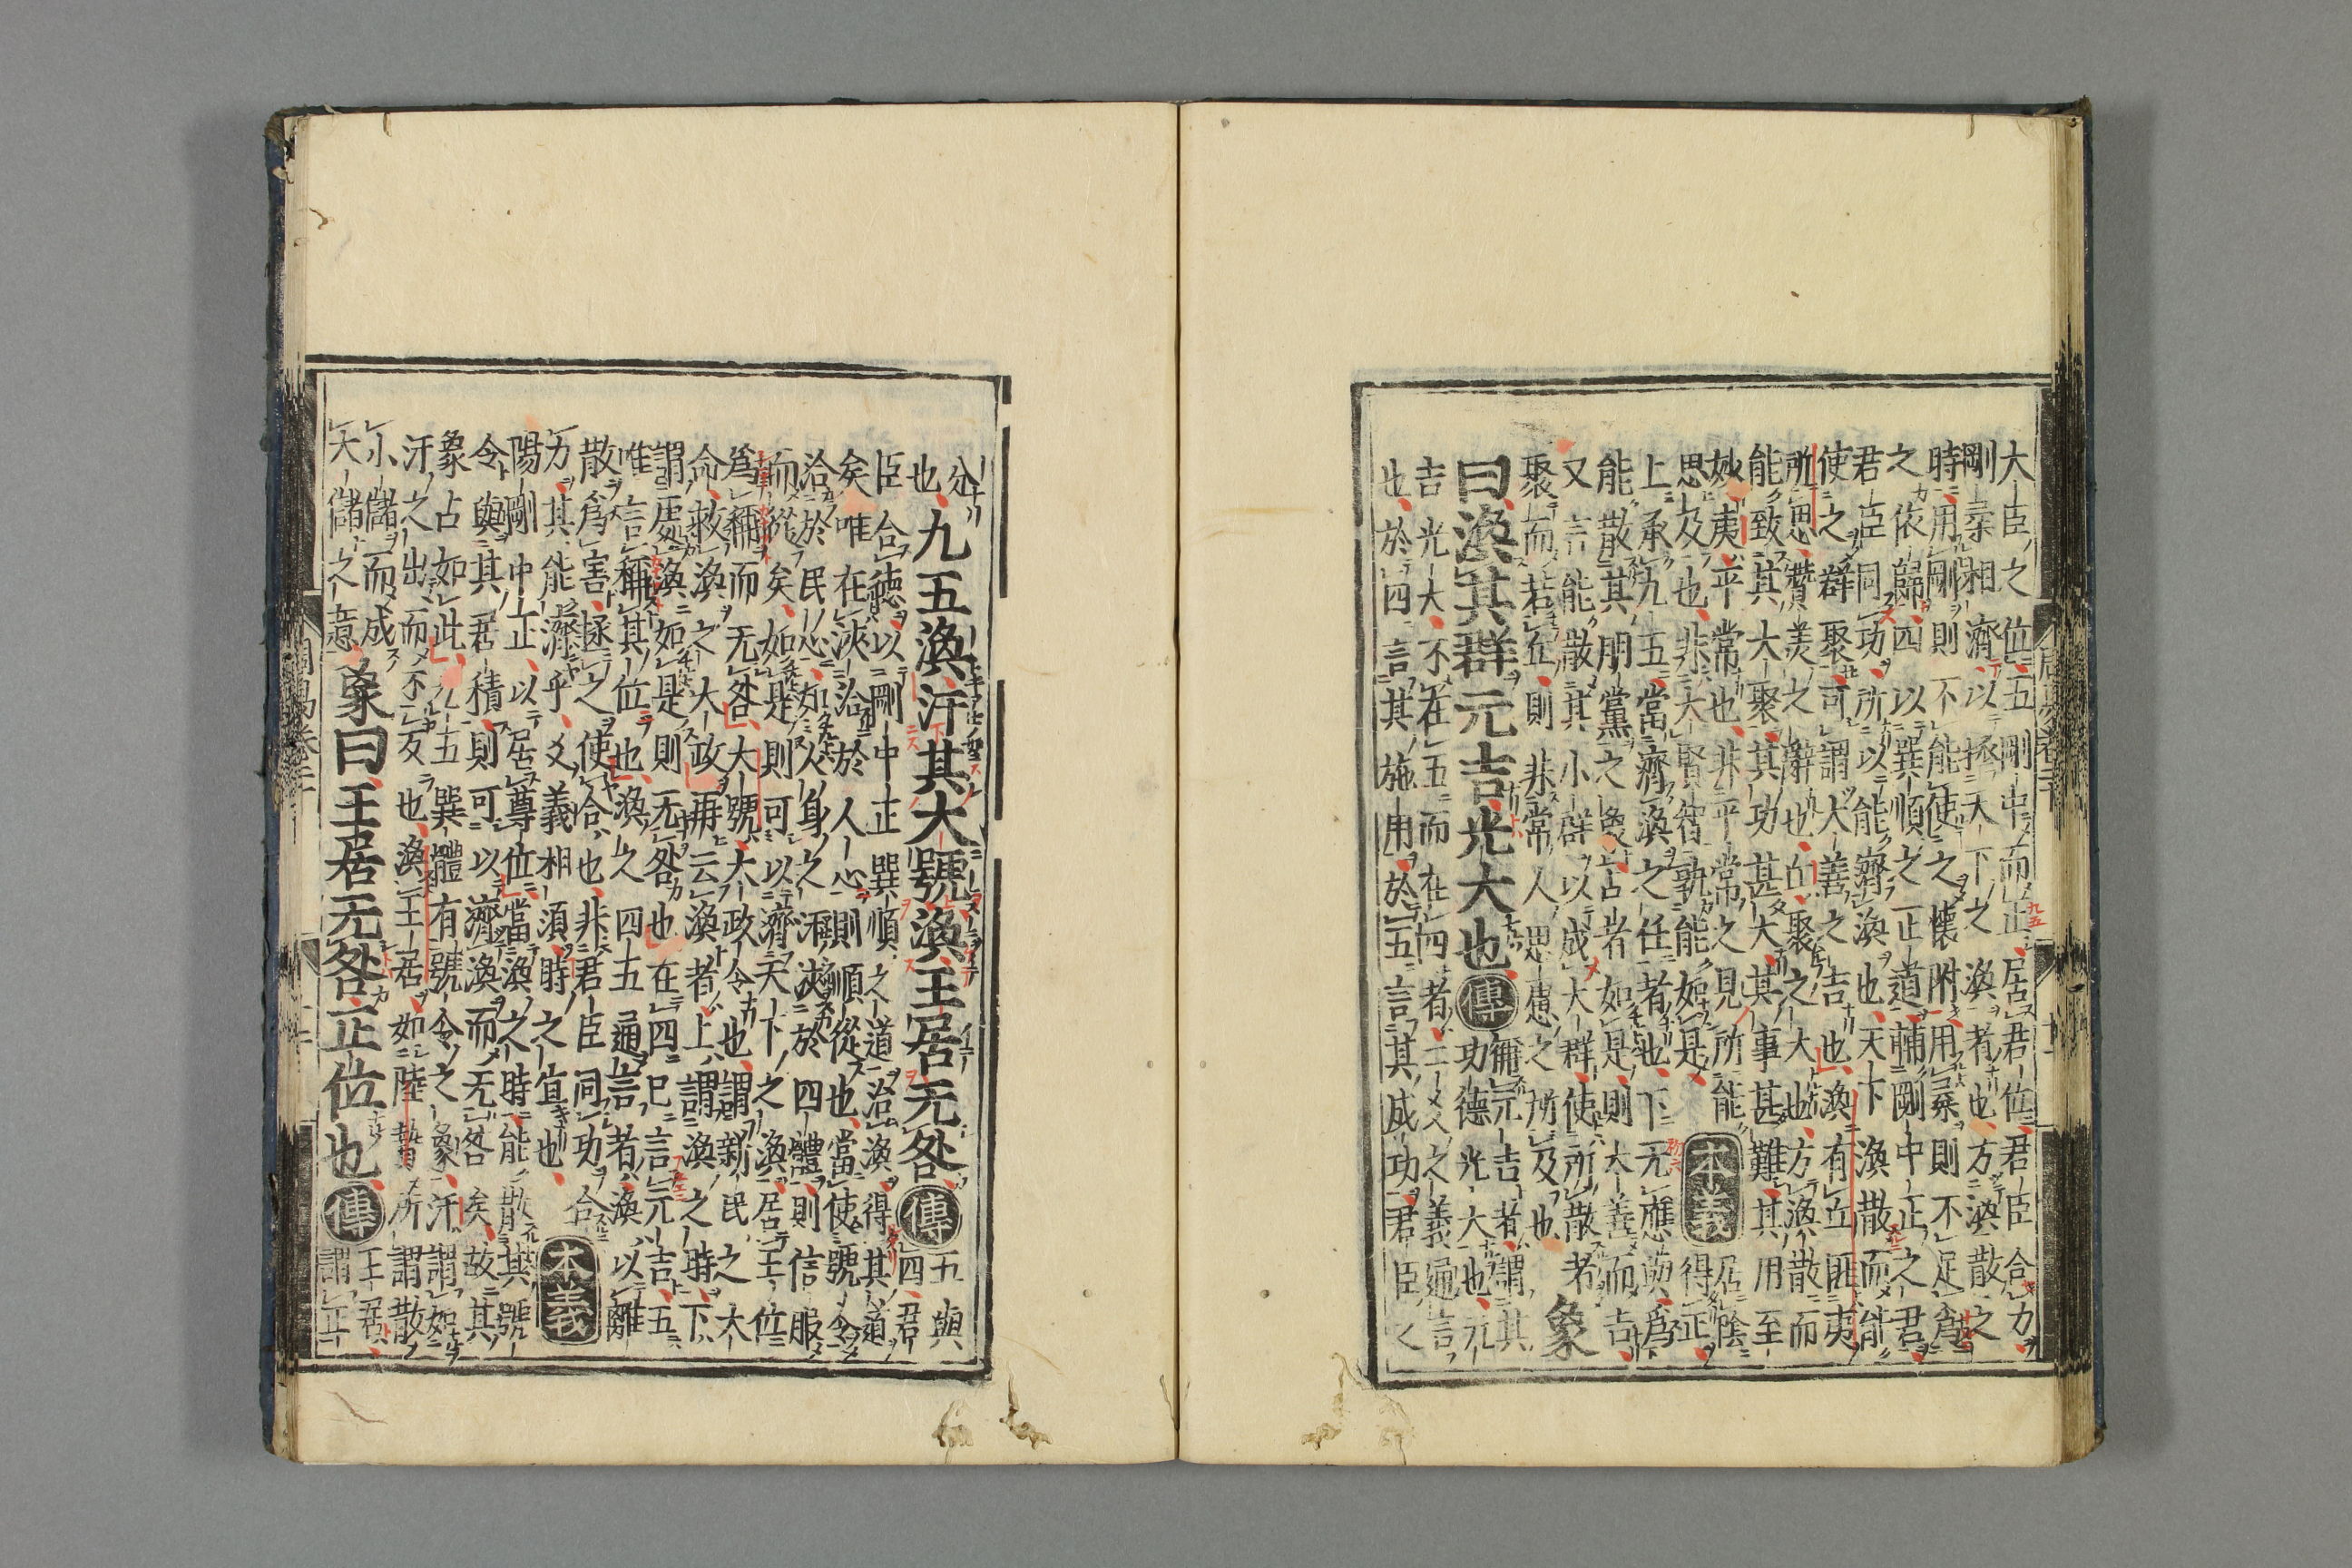 大臣之位五剛中而正居君位君臣合力
剛柔相濟以拯天下之渙者也方渙散之
時用剛則不能使之懷附用柔則不足爲
之依歸四以巽順之正道輔剛中正之君
君臣同功所以能濟渙也天下渙散而能
使之群聚可謂大善之吉也渙有丘匪夷
所思贊美之辭也丘聚之大也方渙散而
能致其大聚其功甚大其事甚難其用至
妙夷平常也非平常之見所能
思及也非大賢智孰能如是
本義
居陰
得正
上承九五當濟渙之任者也下无應與爲
能散其朋黨之象占者如是則大善而吉
又言能散其小群以成大群使所散者
聚而若丘則非常人思慮之所及也
象
曰渙其群元吉光大也
傳
稱元吉者謂其
功德光大也元
吉光大不在五而在四者二爻之義通言
也於四言其施用於五言其成功君臣之
分
也
九五渙汗其大號渙王居无咎
傳
五與
四君
臣合德以剛中正巽順之道治渙得其道
矣唯在浹洽於人心則順從也當使號令
洽於民心如人身之汗浹於四體則信服
而從矣如是則可以濟天下之渙居王位
爲稱而无咎大號大政令也謂新民之大
命救渙之大政再云渙者上謂渙之時下
謂處渙如是則无咎也在四已言元吉五
唯言稱其位也渙之四五通言者渙以離
散爲害拯之使合也非君臣同功合
力其能濟乎爻義相須時之宜也
本義
陽剛中正以居尊位當渙之時能散其號
令與其居積則可以濟渙而无咎矣故其
象占如此九五巽體有號令之象汗謂如
汗之出而不反也渙王居如陸贄所謂散
小儲而成
大儲之意
象曰王居无咎正位也
傳
王居
謂正